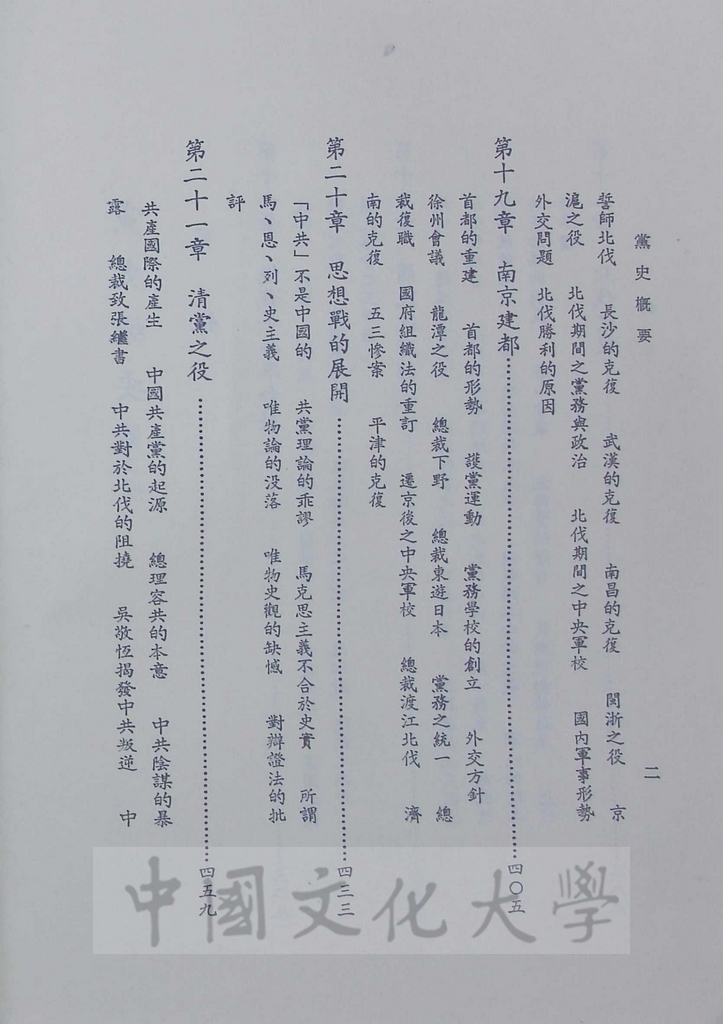 黨史概要
二
誓師北伐　長沙的克復　武漢的克復　南昌的克復　閩浙之役　京
滬之役　北伐期間之黨務與政治　北伐期間之中央軍校　國內軍事形勢
外交問題　北伐勝利的原因
第十九章　南京建都…………四〇五
首都的重建　首都的形勢　護黨運動　黨務學校的創立　外交方針
徐州會議　龍潭之役　總裁下野　總裁東遊日本　黨務之統一　總
裁復職　國府組織法的重訂　遷京後之中央軍校　總裁渡江北伐　濟
南的克復　五三慘案　平津的克復
第二十章　思想戰的展開…………四三三
「中共」不是中國的　共黨理論的乖謬　馬克思主義不合於史實　所謂
馬、恩、列、史主義　唯物論的没落　唯物史觀的缺憾　對辯證法的批
評
第二十一章　清黨之役…………四五九
共產國際的產生　中國共產黨的起源　總理容共的本意　中共陰謀的暴
露　總裁致張繼書　中共對於北伐的阻撓　吳敬恆揭發中共叛逆　中
中國文化大學